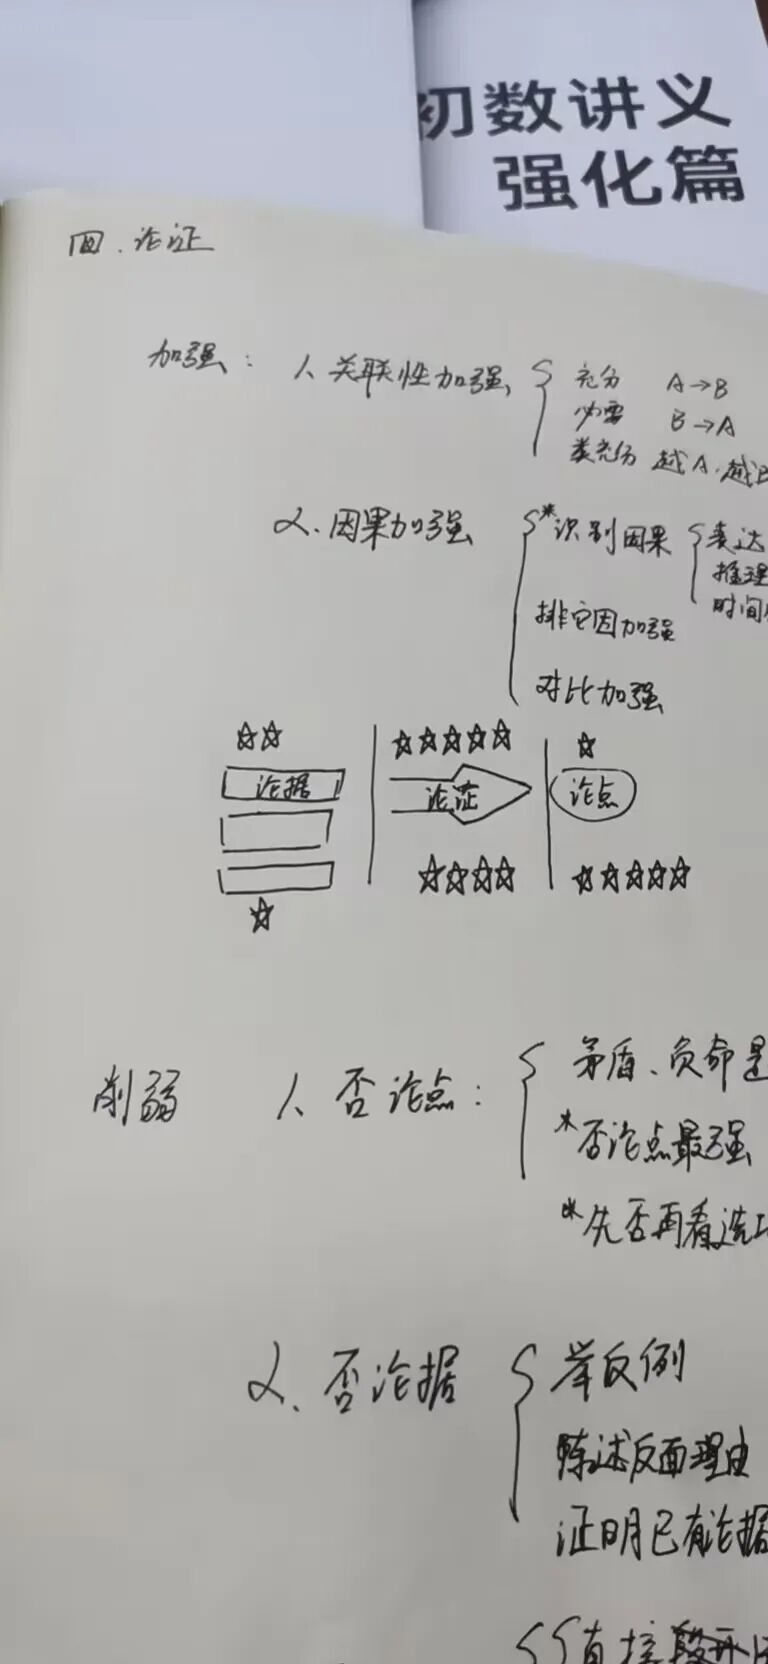 初数讲义
强化篇
四.论证
加强: 1.关联性加强 充分 A→B
必要 B→A
类充分 越A.越B
2.因果加强 *识别因果 表达
推理
时间
排它因加强
对比加强
☆☆ ☆☆☆☆☆ ☆
论据 论证 论点
☆☆☆☆ ☆☆☆☆☆
☆
削弱 1.否论点: 矛盾、负命题
*否论点最强
*先否再看选项
2.否论据 举反例
陈述反面理由
证明已有论据
直接